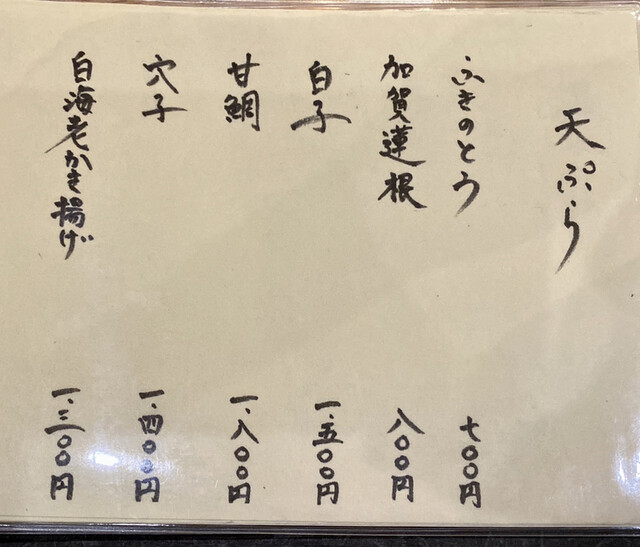 天ぷら
ふきのとう 七〇〇円
加賀蓮根 八〇〇円
白子 一、五〇〇円
甘鯛 一、八〇〇円
穴子 一、四〇〇円
白海老かき揚げ 一、三〇〇円